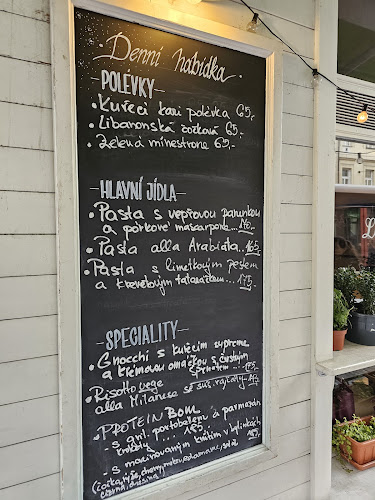 Denní nabídka
-POLÉVKY-
• Kuřecí kari polévka 65,-
• Libanonská čočková 65,-
• Zelená minestrone 65,-
HLAVNÍ JÍDLA-
• Pasta s vepřovou panenkou
a pórkové mascarpone...
• Pasta alla Arabiata...165,-
• Pasta s limetkovým pestem
a krevetovým tataráčkem...175,-
-SPECIALITY-
• Gnocchi s kuřecím supreme
a krémovou omáčkou s čerstvým
• Risotto vege
alla Milanese se suš. rajčaty
- PROTEIN BOWL
- s gril. portobellem a parmazán
krokety...185,-
- s marinovaným krůtím v bylinkách